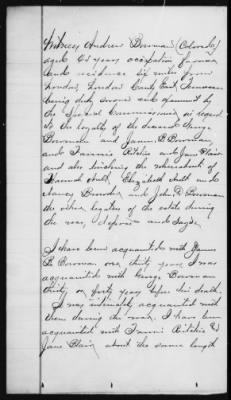 Witness Andrew Bowman (Colorado)
aged 62 years occupation farmer
and residence six miles from
Loudon, Loudon County East Tennessee
being duly sworn and examined by
the Special Commissioner in regard
to the loyalty of the deceased George
Bowman and James P. Bowman
and Fannie Ritchie and Jane Blair
and also touching the
Hannah Hutt, Elizabeth Hutt and
Nancy and John D. Bowman
the other legatees of the estate during
the war, deposes and says:
I have been acquainted with James
P. Bowman over thirty years I was
acquainted with George Bowman
thirty or forty years before his death.
I was intimately acquainted with
them during the war. I have been
acquainted with Fannie Ritchie &
Jane Blair about the same length